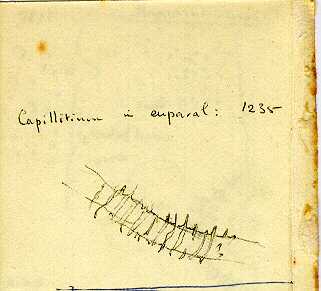 Capillitium in euparal: 1235
?